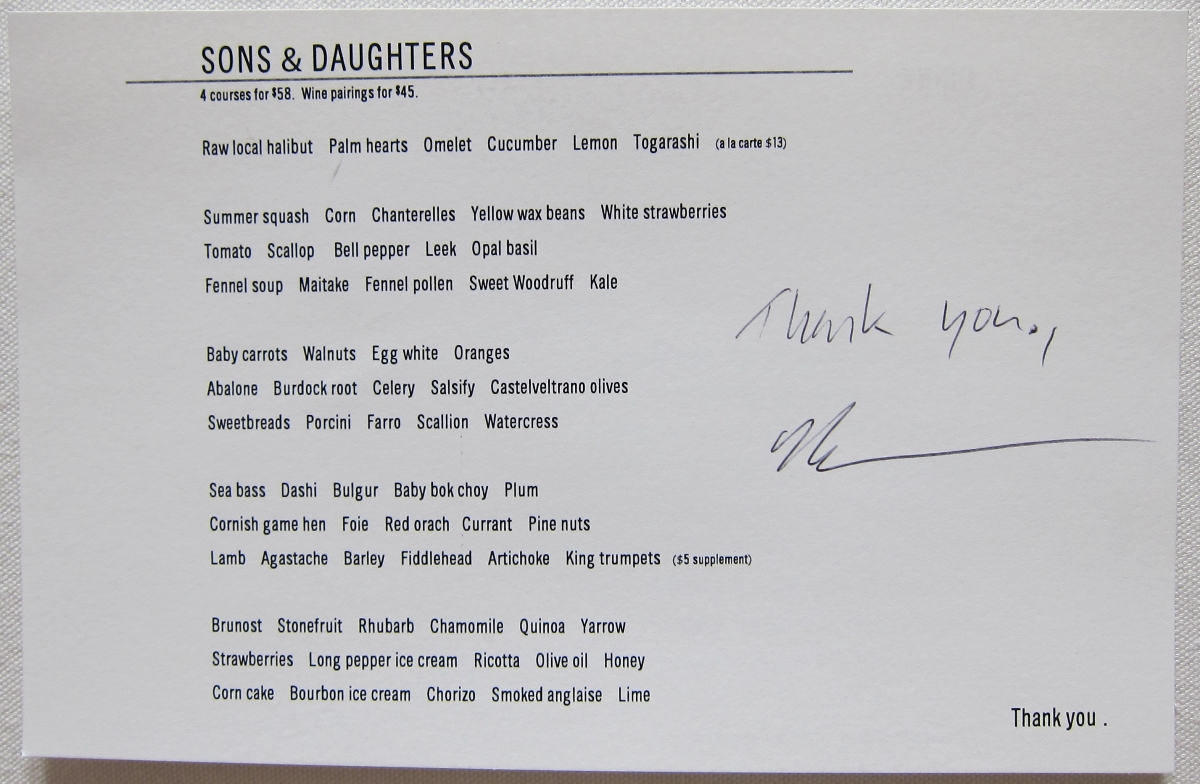 SONS & DAUGHTERS
4 courses for $58. Wine pairings for $45.
Raw local halibut Palm hearts Omelet Cucumber Lemon Togarashi (a la carte $13)
Summer squash Corn Chanterelles Yellow wax beans White strawberries
Tomato Scallop Bell pepper Leek Opal basil
Fennel soup Maitake Fennel pollen Sweet Woodruff Kale
Thank you,
Baby carrots Walnuts Egg white Oranges
Abalone Burdock root Celery Salsify Castelveltrano olives
Sweetbreads Porcini Farro Scallion Watercress
Sea bass Dashi Bulgur Baby bok choy Plum
Cornish game hen Foie Red orach Currant Pine nuts
Lamb Agastache Barley Fiddlehead Artichoke King trumpets ($5 supplement)
Brunost Stonefruit Rhubarb Chamomile Quinoa Yarrow
Strawberries Long pepper ice cream Ricotta Olive oil Honey
Corn cake Bourbon ice cream Chorizo Smoked anglaise Lime
Thank you .